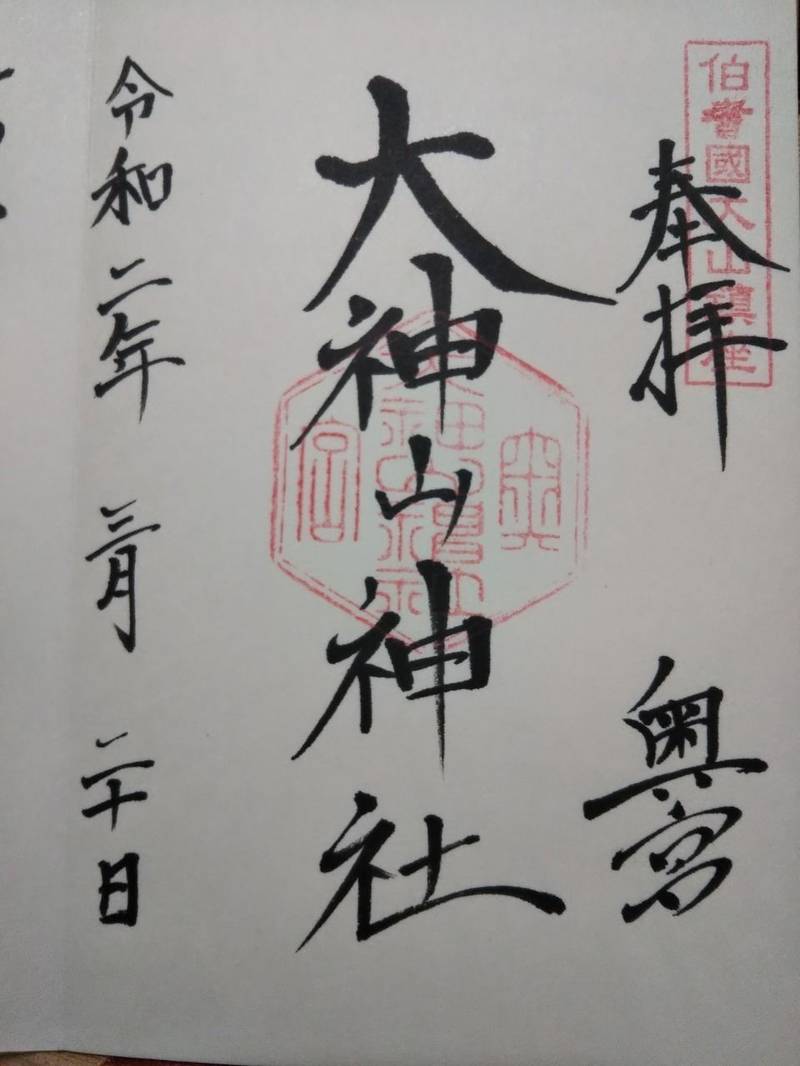 伯耆國大山鎮座
奉拝
奥宮
大神山神社
奥
宮
令和二年 三月 二十日